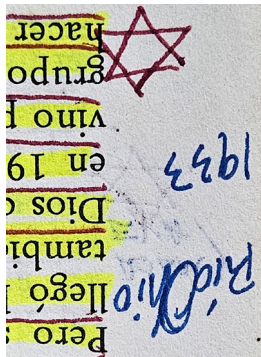 Pero
llegó
tambi
Dios
en 19
vino p
grupo
hacer
Río Ohio
1933